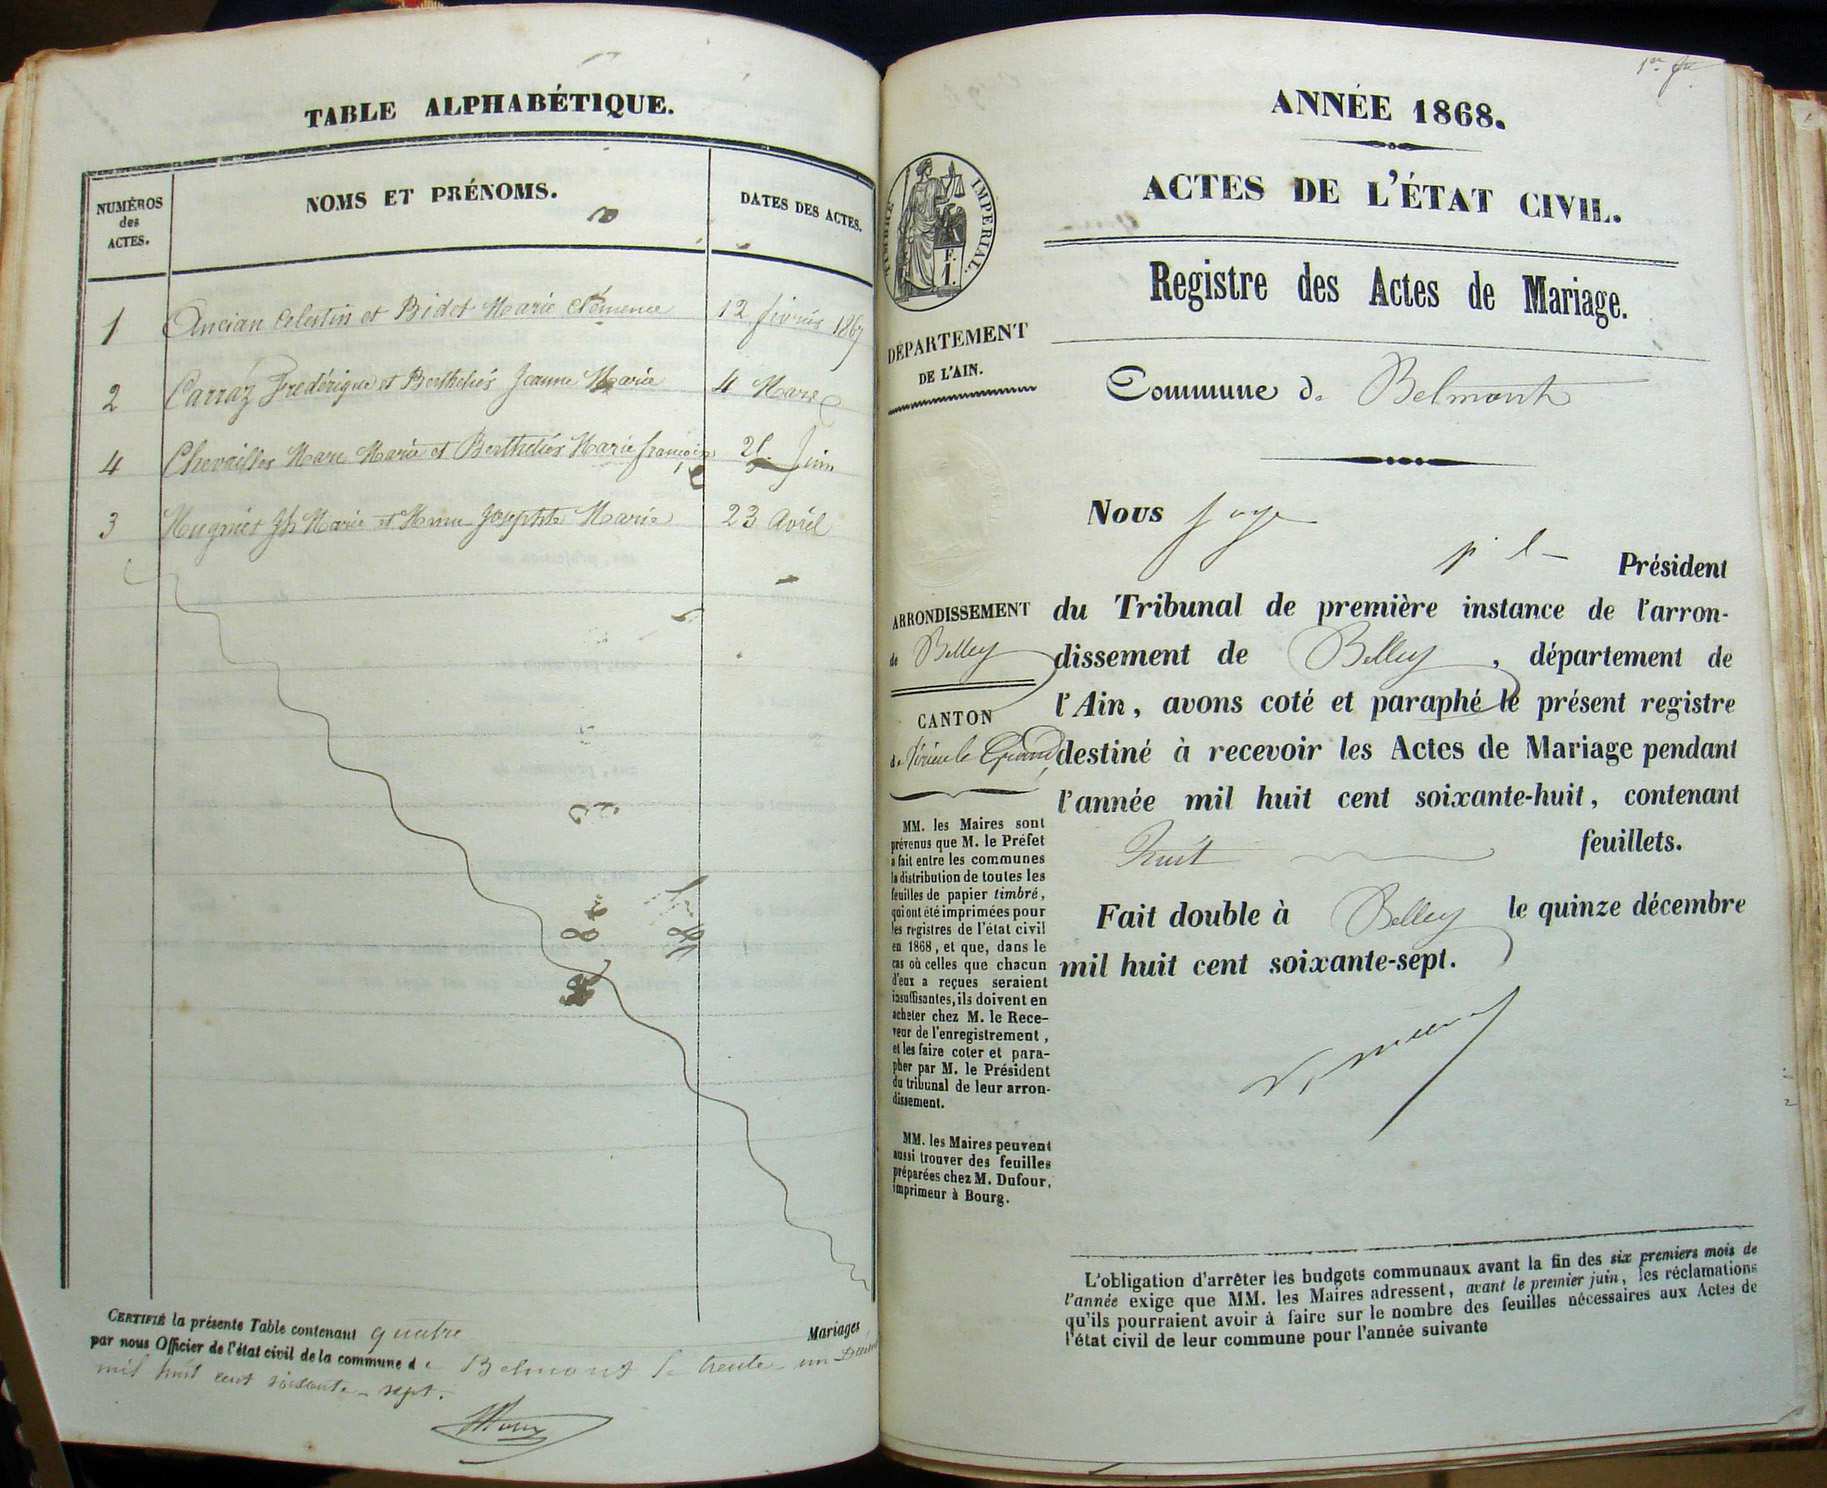 TABLE ALPHABÉTIQUE.
NUMÉROS
des
ACTES.
NOMS ET PRÉNOMS.
DATES DES ACTES.
1 Ancian Celestin et Bidet Marie Clémence 12 févrīer 1867
2 Carraz Frédérique et Berthelier Jeanne Marie 4 Mars
4 Marc Marie et Berthelier Marie françoise Juin
3 Mugnier Jh Marie et Josephte Marie 23 Avril
CERTIFIÉ la présente Table contenant quatre Mariages
par nous Officier de l'état civil de la commune de Belmont le trente-un
mil huit cent soixante-sept.
1er
ANNÉE 1868.
ACTES DE L'ÉTAT CIVIL.
Registre des Actes de Mariage.
TIMBRE IMPÉRIAL.
F.
1.
DÉPARTEMENT
DE L'AIN.
Commune de Belmont
Nous
Président
du Tribunal de première instance de l'arron-
dissement de Belley, département de
l'Ain, avons coté et paraphé le présent registre
destiné à recevoir les Actes de Mariage pendant
l'année mil huit cent soixante-huit, contenant
huit feuillets.
Fait double à Belley le quinze décembre
mil huit cent soixante-sept.
ARRONDISSEMENT
de Belley
CANTON
de Virieu le Grand
MM. les Maires sont
prévenus que M. le Préfet
a fait entre les communes
la distribution de toutes les
feuilles de papier timbré,
qui ont été imprimées pour
les registres de l'état civil
en 1868, et que, dans le
cas où celles que chacun
d'eux a reçues seraient
insuffisantes, ils doivent en
acheter chez M. le Rece-
veur de l'enregistrement,
et les faire coter et para-
pher par M. le Président
du tribunal de leur arron-
dissement.
MM. les Maires peuvent
aussi trouver des feuilles
préparées chez M. Dufour,
imprimeur à Bourg.
L'obligation d'arrêter les budgets communaux avant la fin des six premiers mois de
l'année exige que MM. les Maires adressent, avant le premier juin, les réclamations
qu'ils pourraient avoir à faire sur le nombre des feuilles nécessaires aux Actes de
l'état civil de leur commune pour l'année suivante